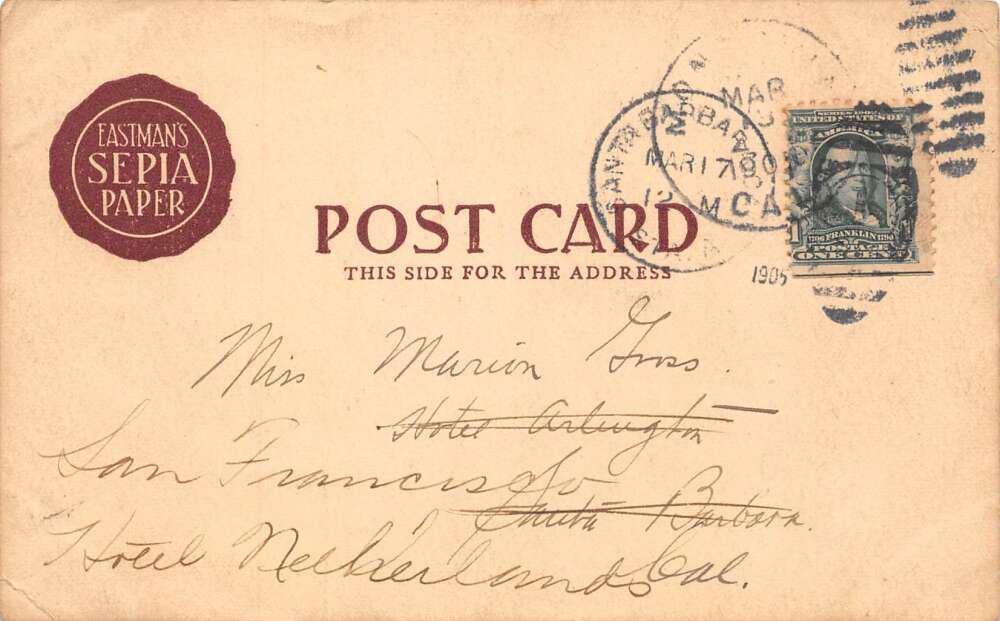 EASTMAN'S
SEPIA
PAPER
POST CARD
THIS SIDE FOR THE ADDRESS
MAR
SANTA BARBARA
MAR 17 1905
12 M
CAL
STA.
SERIES 1902
UNITED STATES OF
AMERICA
1706 FRANKLIN 1790
POSTAGE
ONE CENT
1905
Miss Marion Gross.
Hotel Arlington
San Francisco
Santa Barbara.
Hotel Netherlands Cal.